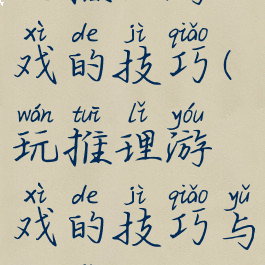 xì de jì qiǎo
戏的技巧(
wán tuī lǐ yóu
玩推理游
xì de jì qiǎo yǔ
戏的技巧与